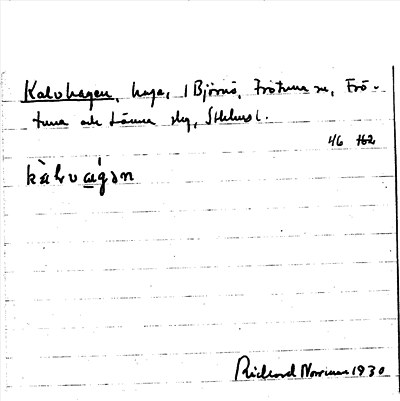 Kalvhagen, hage, i Björnö, Frötuna sn, Frö-
tuna och Länna slg, Sthlms l.
46 162
kàlvagən
Richard Norrman 1930